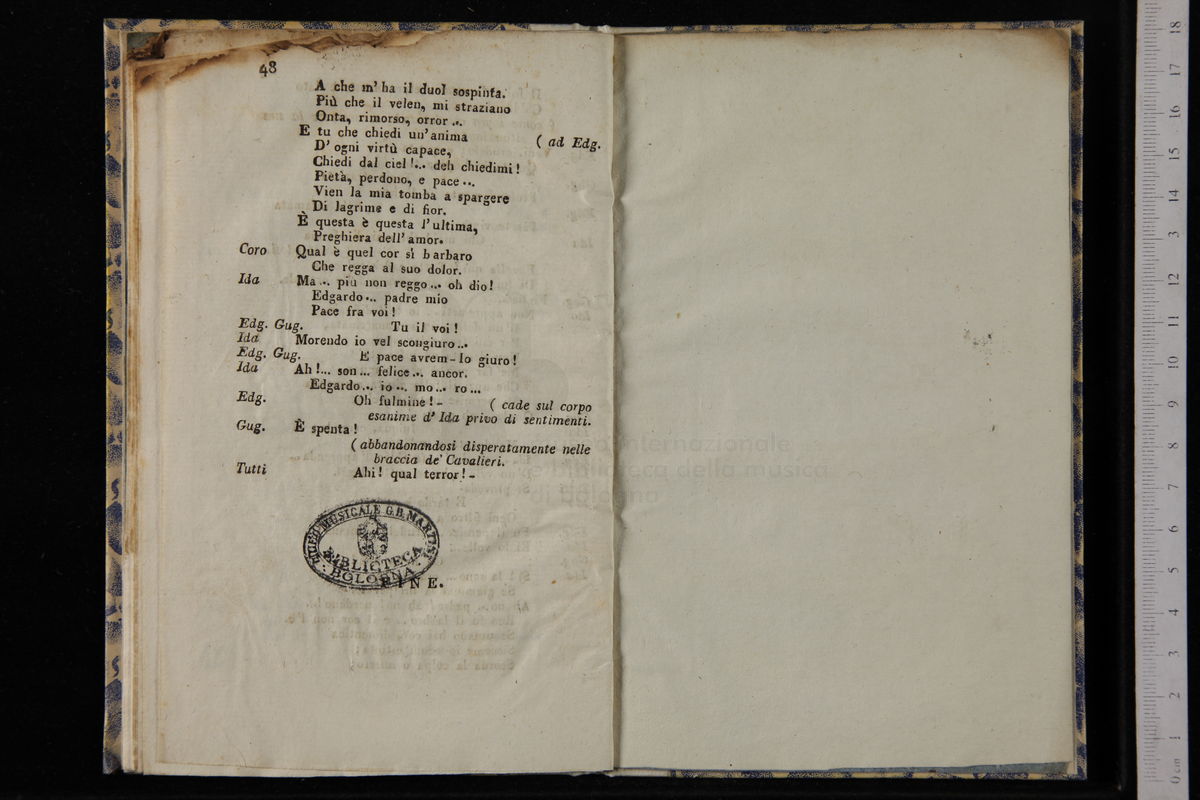 48
A che m' ha il duol sospinta.
Più che il velen, mi straziano
Onta, rimorso, orror ...
E tu che chiedi un' anima ( ad Edg.
D' ogni virtù capace,
Chiedi dal ciel !... deh chiedimi !
Pietà, perdono, e pace ...
Vien la mia tomba a spargere
Di lagrime e di fior.
È questa è questa l' ultima,
Preghiera dell' amor.
Coro Qual è quel cor sì barbaro
Che regga al suo dolor.
Ida Ma ... più non reggo ... oh dio !
Edgardo ... padre mio
Pace fra voi !
Edg. Gug. Tu il voi !
Ida Morendo io vel scongiuro ...
Edg. Gug. E pace avrem - lo giuro !
Ida Ah !... son ... felice ... ancor.
Edgardo ... io ... mo ... ro ...
Edg. Oh fulmine ! - ( cade sul corpo
esanime d' Ida privo di sentimenti.
Gug. È spenta !
( abbandonandosi disperatamente nelle
braccia de' Cavalieri.
Tutti Ahi ! qual terror ! -
MUSICALE G. B. MARTINI
BIBLIOTECA
BOLOGNA
FINE.
internazionale
e biblioteca della musica
di Bologna
0 cm 1 2 3 4 5 6 7 8 9 10 11 12 13 14 15 16 17 18